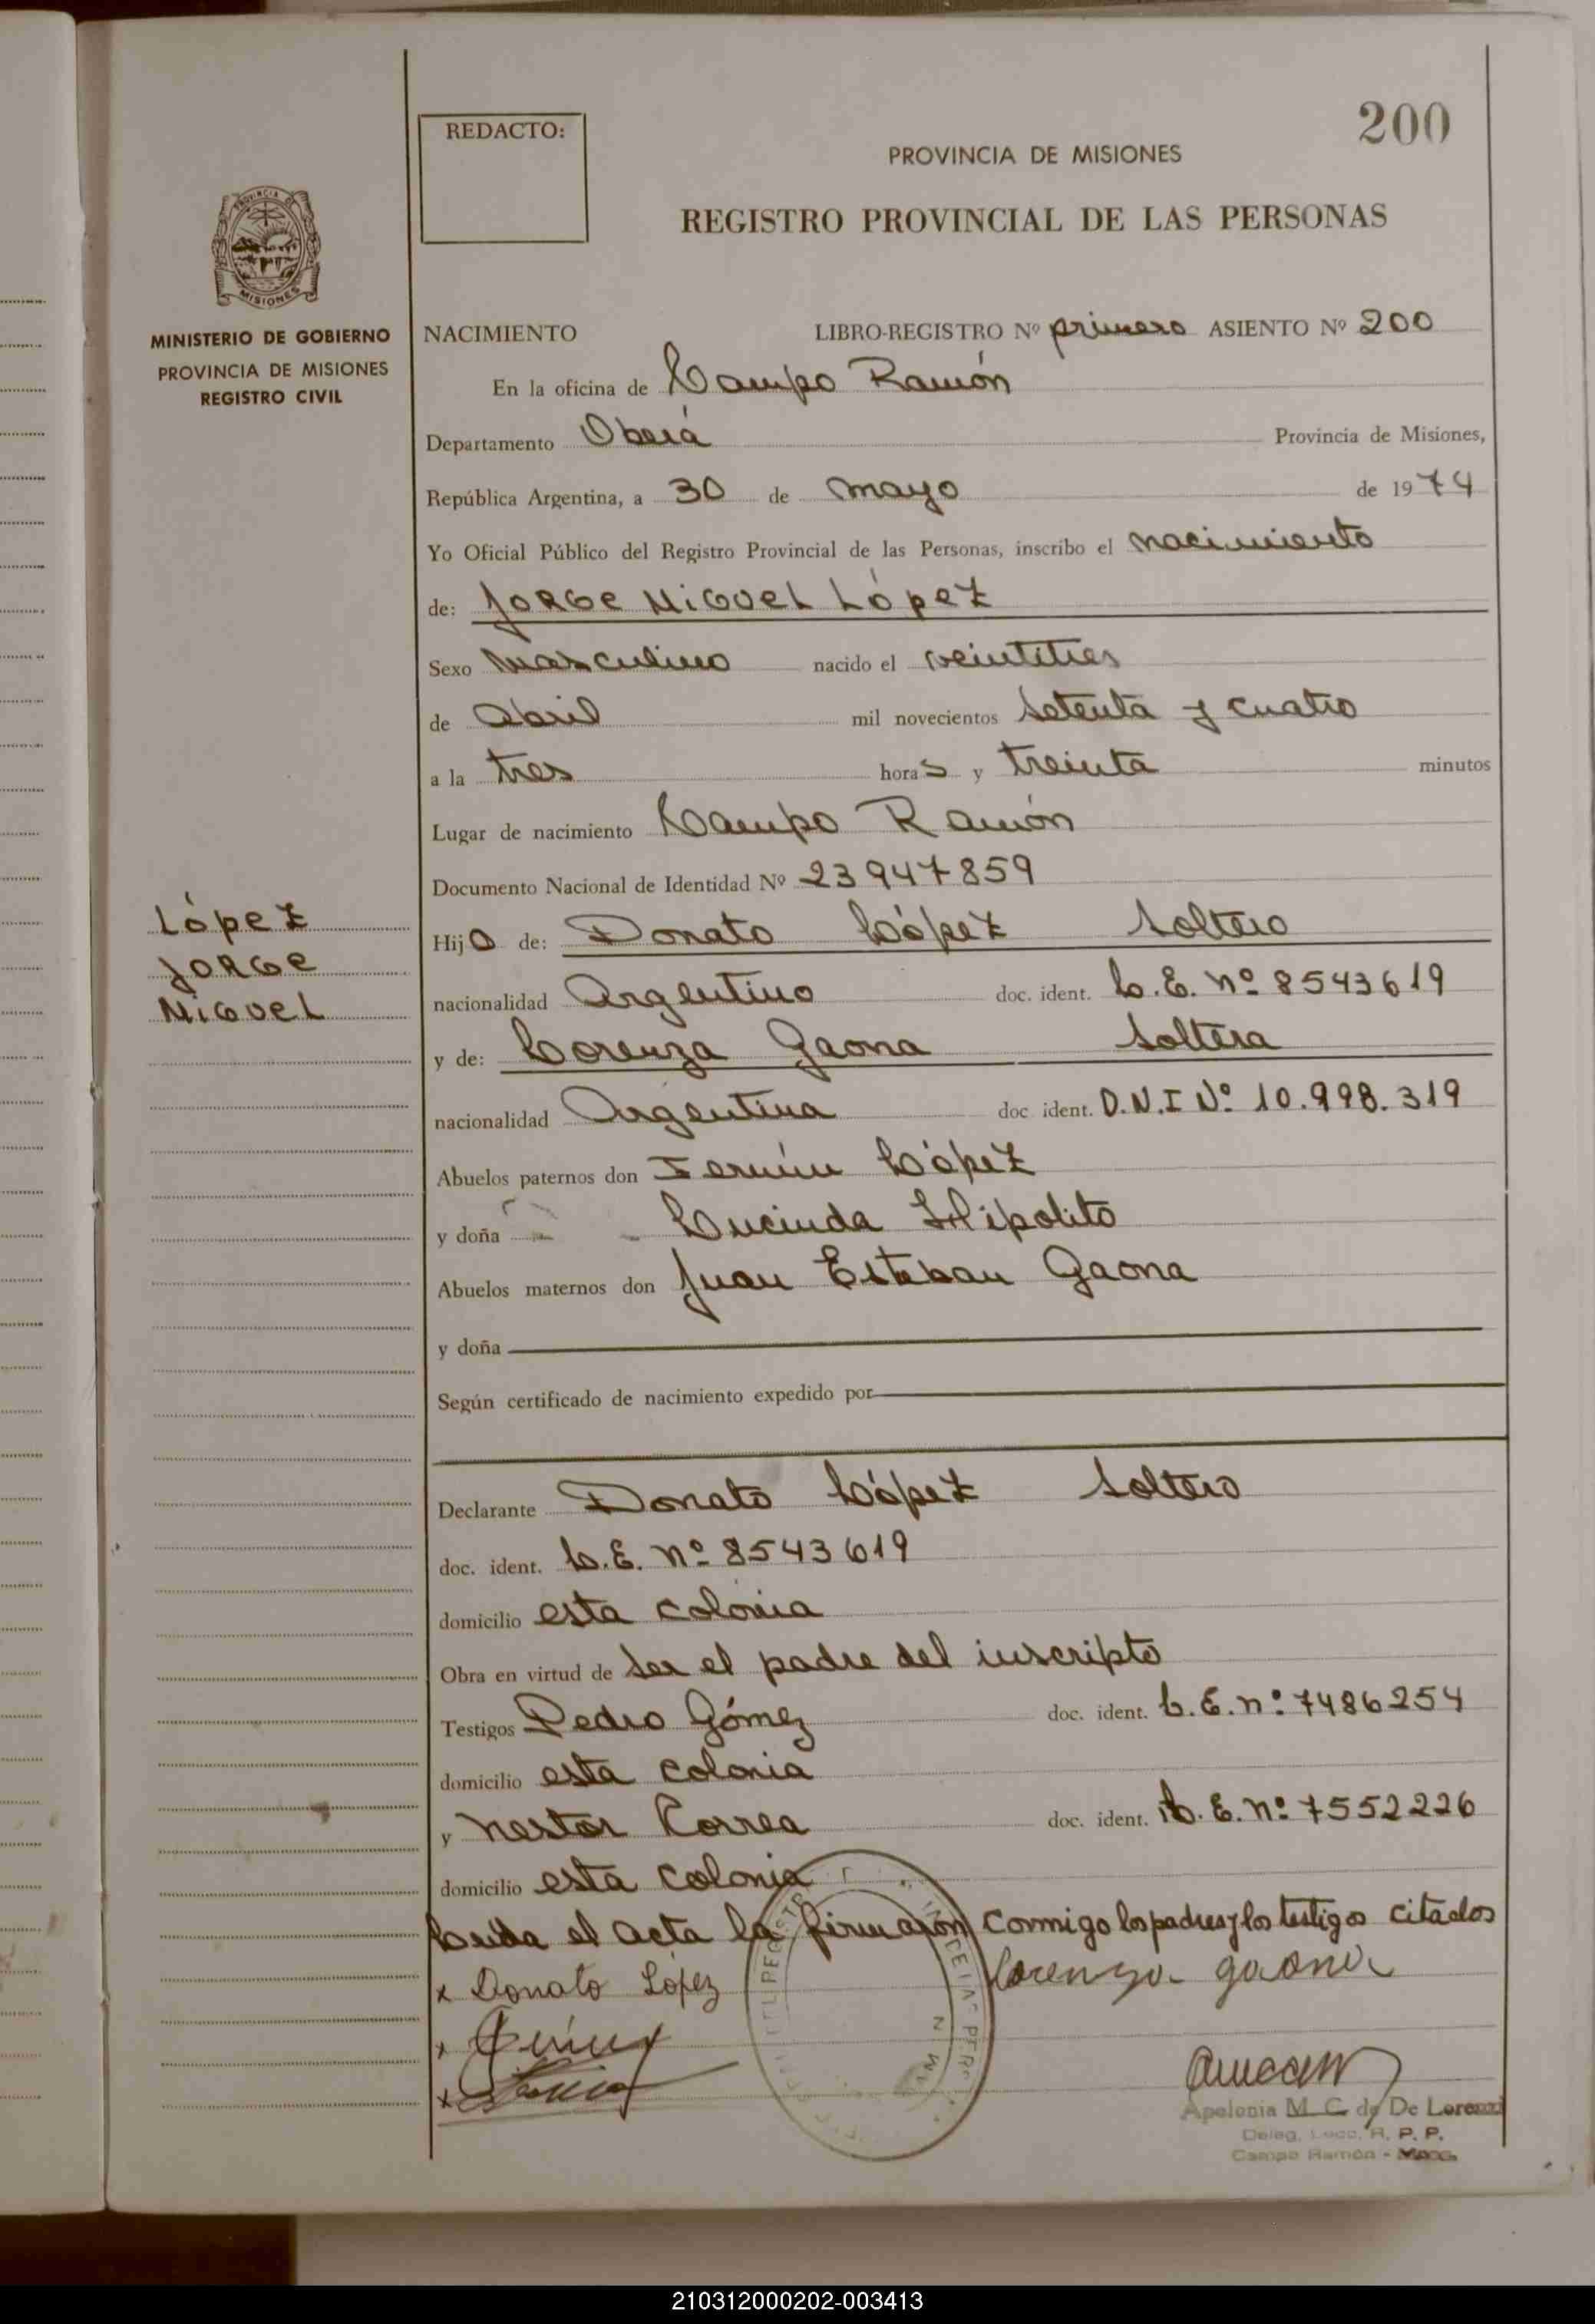 200
REDACTO:
PROVINCIA DE MISIONES
REGISTRO PROVINCIAL DE LAS PERSONAS
PROVINCIA DE
MISIONES
MINISTERIO DE GOBIERNO
PROVINCIA DE MISIONES
REGISTRO CIVIL
NACIMIENTO LIBRO-REGISTRO Nº primero ASIENTO Nº 200
En la oficina de Campo Ramón
Departamento Oberá Provincia de Misiones,
República Argentina, a 30 de mayo de 1974
Yo Oficial Público del Registro Provincial de las Personas, inscribo el nacimiento
de: JORGE MIGUEL LÓPEZ
Sexo masculino nacido el veintitres
de abril mil novecientos setenta y cuatro
a la tres horas y treinta minutos
Lugar de nacimiento Campo Ramón
Documento Nacional de Identidad Nº 23947859
López
Jorge
Miguel
Hijo de: Donato López soltero
nacionalidad Argentino doc. ident. L.E. nº 8543619
y de: Lorenza Gaona soltera
nacionalidad Argentina doc ident. D.N.I Nº 10.998.319
Abuelos paternos don Fermín López
y doña Lucinda Hipolito
Abuelos maternos don Juan Esteban Gaona
y doña
Según certificado de nacimiento expedido por
Declarante Donato López soltero
doc. ident. L.E. nº 8543619
domicilio esta colonia
Obra en virtud de ser el padre del inscripto
Testigos Pedro Gómez doc. ident. L.E. nº 7486254
domicilio esta colonia
y Nestor Correa doc. ident. L.E. nº 7552226
domicilio esta colonia
Leída el acta la firmaron conmigo los padres y los testigos citados
x Donato López Lorenza gaona
x
x
Apolonia M. C. de De Lorenzi
Deleg. Loca. R. P. P.
Campo Ramón - Mnes.
210312000202-003413